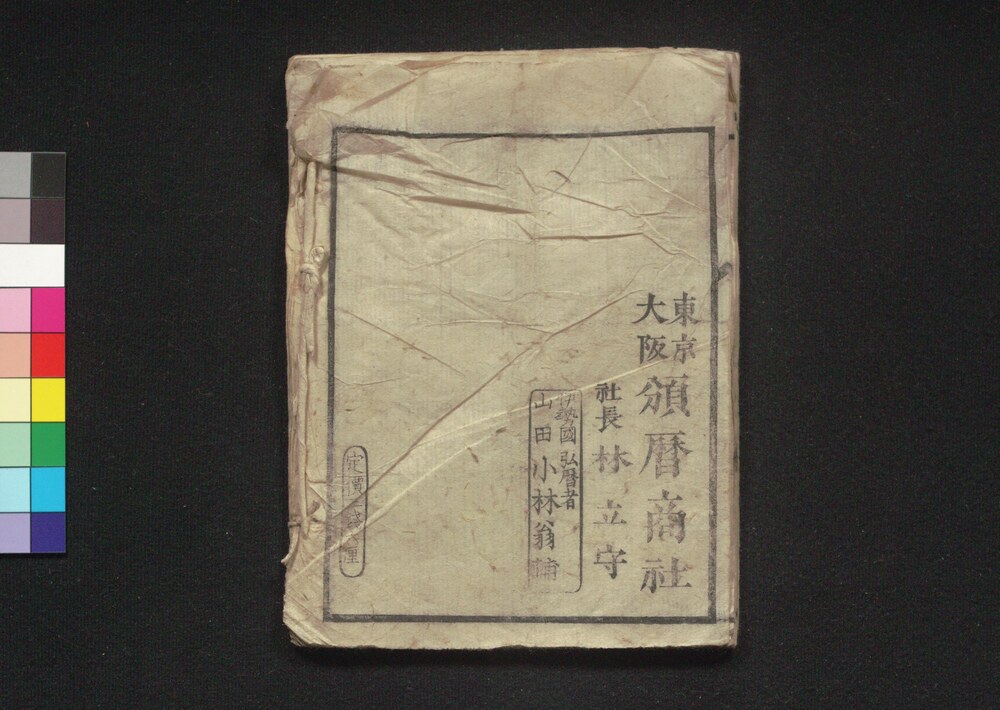 東京
大阪
頒暦商社
社長 林立守
伊勢國 弘暦者
山田 小林翁輔
定價 錢 厘